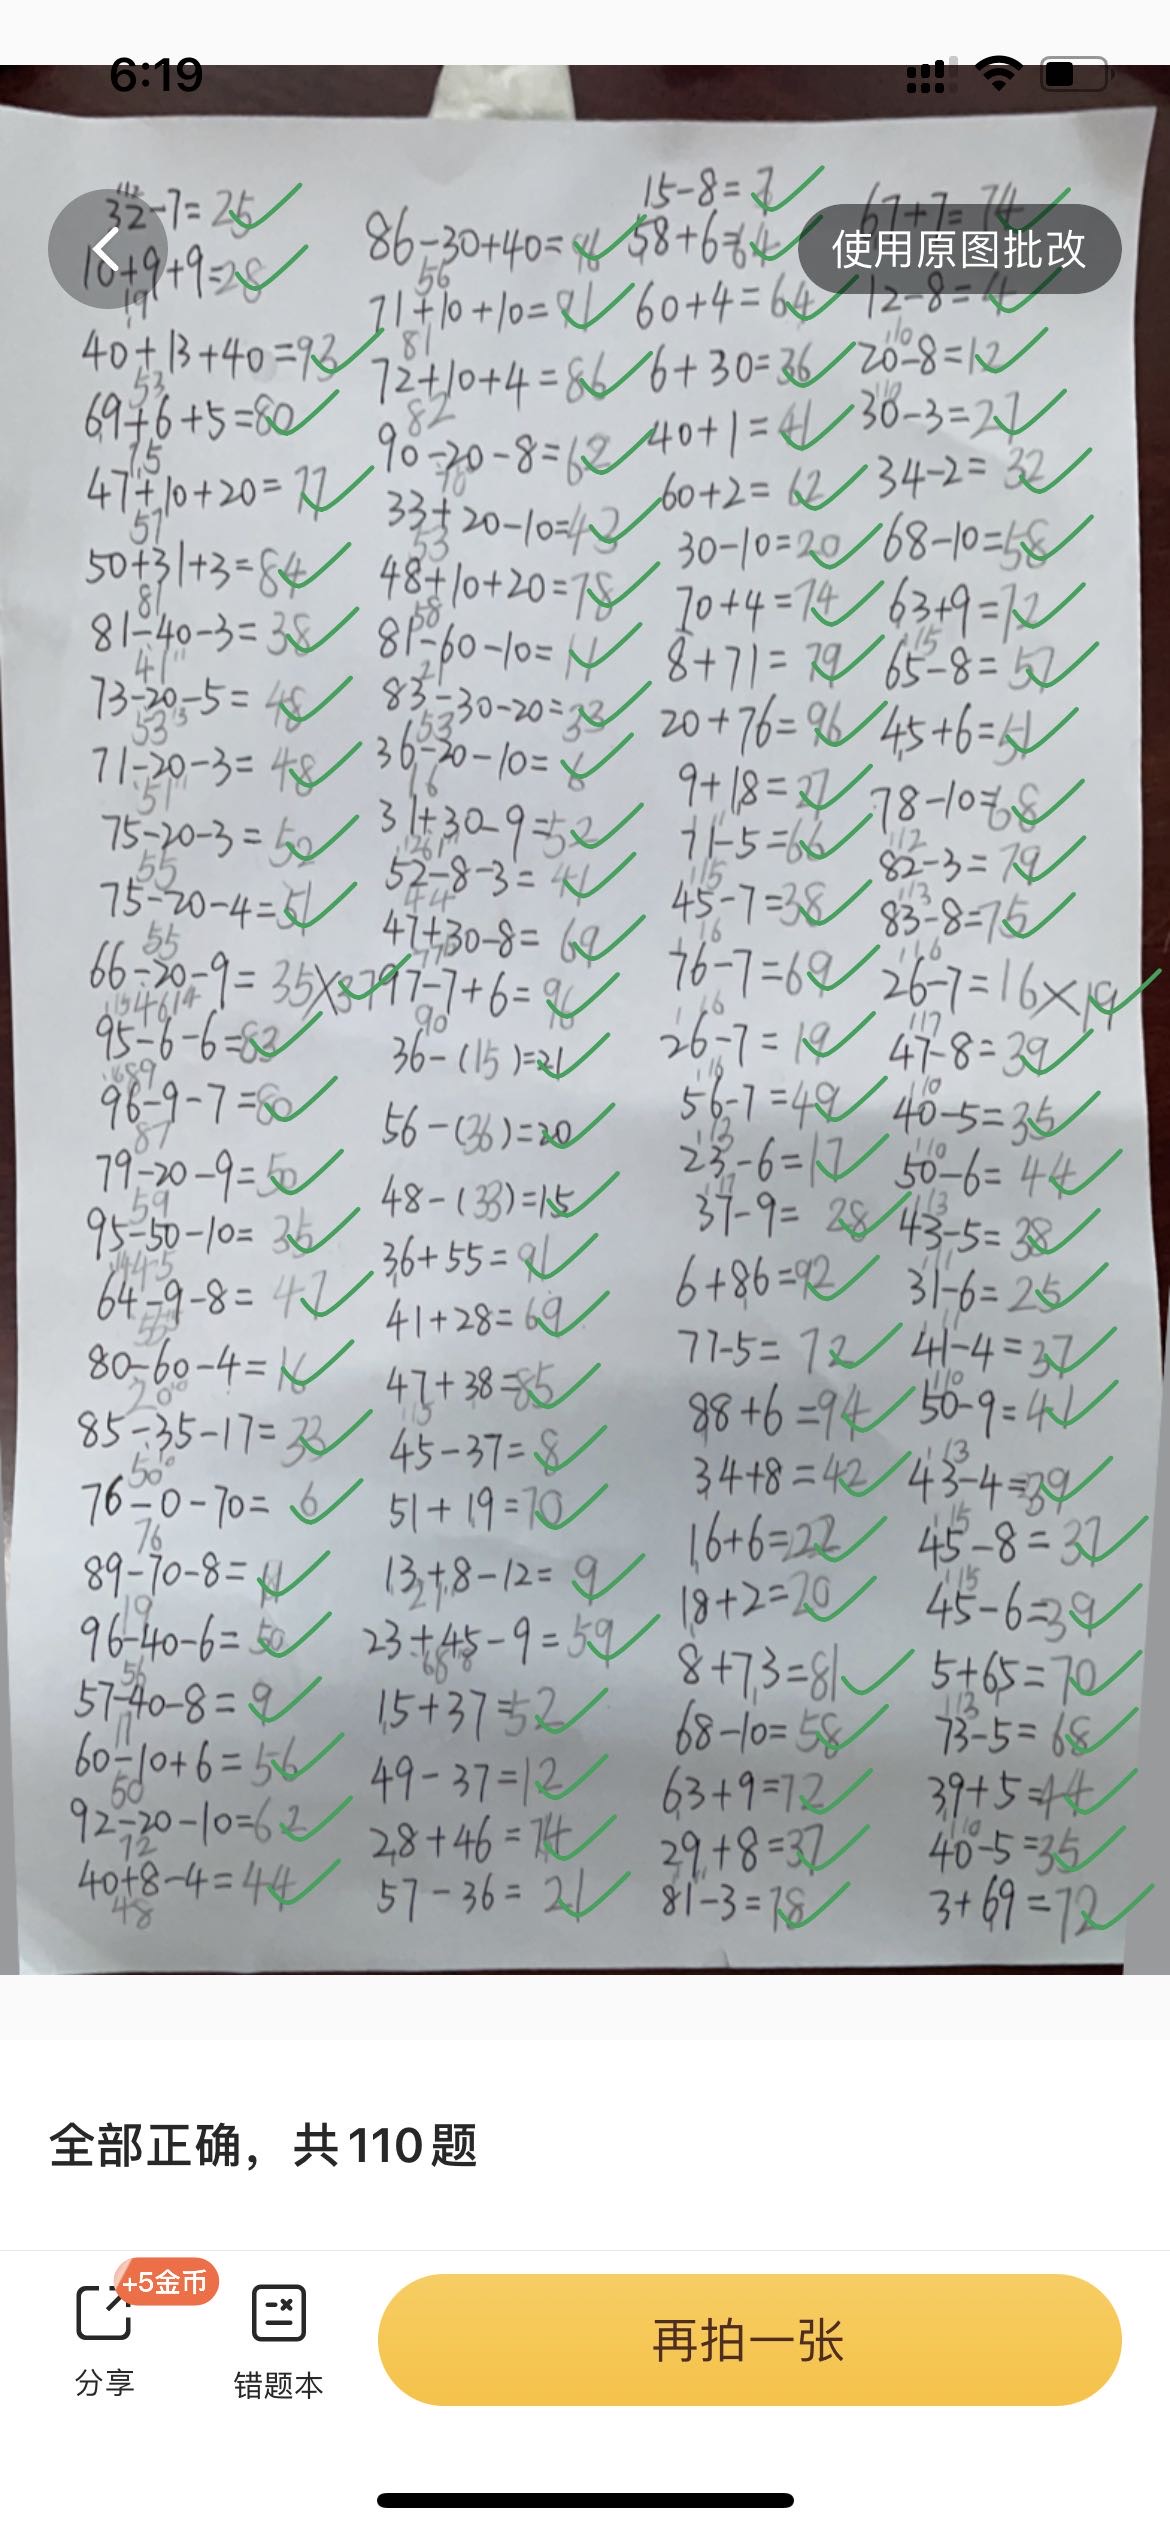 6:19
使用原图批改
32-7=25
10+9+9=28
19
40+13+40=93
53
69+6+5=80
75
47+10+20=77
57
50+31+3=84
81
81-40-3=38
41
73-20-5=48
53
71-20-3=48
51
75-20-3=52
55
75-20-4=51
55
66-20-9=35×37
46
95-6-6=83
89
96-9-7=80
87
79-20-9=50
59
95-50-10=35
45
64-9-8=47
55
80-60-4=16
20
85-35-17=33
50
76-0-70=6
76
89-70-8=11
19
96-40-6=50
56
57-40-8=9
17
60-10+6=56
50
92-20-10=62
72
40+8-4=44
48
86-30+40=96
56
71+10+10=91
81
72+10+4=86
82
90-20-8=62
70
33+20-10=43
53
48+10+20=78
58
81-60-10=11
21
83-30-20=33
53
36-20-10=6
16
31+30-9=52
61
52-8-3=41
44
47+30-8=69
77
97-7+6=96
90
36-(15)=21
56-(36)=20
48-(33)=15
36+55=91
41+28=69
47+38=85
45-37=8
51+19=70
13+8-12=9
21
23+45-9=59
68
15+37=52
49-37=12
28+46=74
57-36=21
15-8=7
58+6=64
60+4=64
6+30=36
40+1=41
60+2=62
30-10=20
70+4=74
8+71=79
20+76=96
9+18=27
71-5=66
45-7=38
76-7=69
26-7=19
56-7=49
23-6=17
37-9=28
6+86=92
77-5=72
88+6=94
34+8=42
16+6=22
18+2=20
8+73=81
68-10=58
63+9=72
29+8=37
81-3=78
67+7=74
12-8=4
20-8=12
30-3=27
34-2=32
68-10=58
63+9=72
65-8=57
45+6=51
78-10=68
82-3=79
83-8=75
26-7=16×19
47-8=39
40-5=35
50-6=44
43-5=38
31-6=25
41-4=37
50-9=41
43-4=39
45-8=37
45-6=39
5+65=70
73-5=68
39+5=44
40-5=35
3+69=72
全部正确，共110题
+5金币
分享
错题本
再拍一张